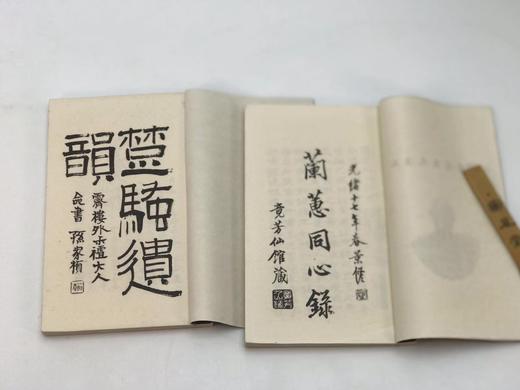 楚騷遺
韻
霽樓外大人
命書 孫家
光緒十七年春景僊
蘭蕙同心錄
竟芳仙館藏